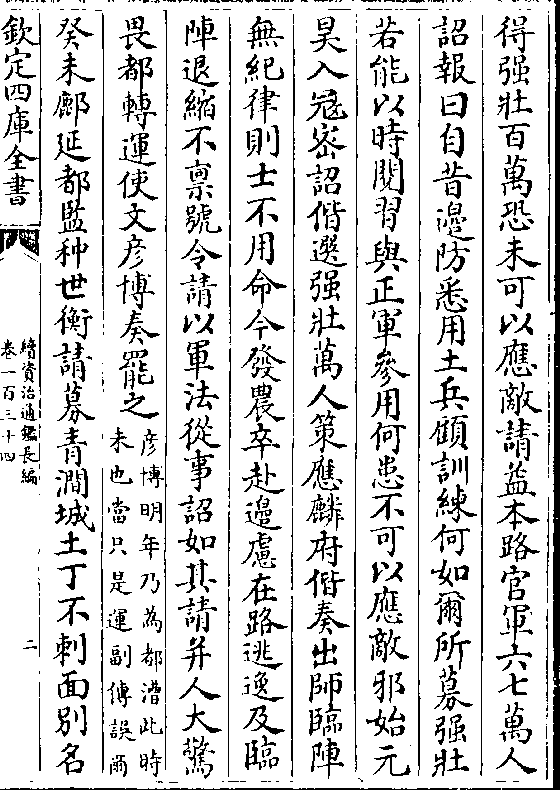 得强壯百萬恐未可以應敵請益本路官軍六七萬人
詔報曰自昔邊防悉用土兵顧訓練何如爾所募强壯
若能以時閱習與正軍參用何患不可以應敵邪始元
昊入冦密詔偕選强壯萬人策應麟府偕奏出師臨陣
無紀律則士不用命今發農卒赴邊慮在路逃逸及臨
陣退縮不禀號令請以軍法從事詔如其請并人大驚
畏都轉運使文彦博奏罷之
彦博明年乃為都漕此時
未也當只是運副傳誤爾
癸未鄜延都監种世衡請募青澗城土丁不刺面别名
欽定四庫全書
續資治通鑑長編
卷一百三十四
二